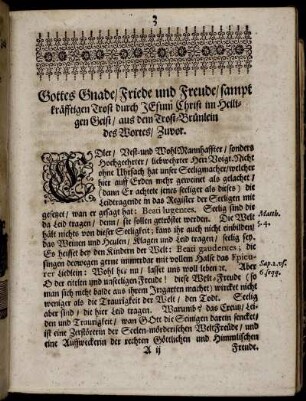 3
Gottes Gnade/ Friede und Freude/ sampt
kräfftigen Trost durch JEsum Christ im Heili-
gen Geist/ aus dem Trost-Brünlein
des Wortes/ Zuvor.
EDler/ Vest- und WohlMannhaffter/ sonders
Hochgeehrter/ liebwehrter Herr Voigt. Nicht
ohne Uhrsach hat unser Seeligmacher/ welcher
hier auff Erden mehr geweinet als gelachet/
(dann Er achtete jenes seeliger als dieses) die
Leidtragende in das Register der Seeligen mit
gesetzet/ wan er gesagt hat: Beati lugentes, Seelig sind die
da Leid tragen/ denn/ sie sollen getröstet werden. Die Welt
hält nichts von dieser Seeligkeit; kans ihr auch nicht einbilden/
das Weinen und Heulen/ Klagen und Leid tragen/ seelig sey.
Es heisset bey den Kindern der Welt: Beati gaudences, die
singen deswegen gerne immerdar mit vollem Halse das Epicu-
rer Liedlein: Wohl her nu/ lasset uns woll leben ꝛc. Aber
O der eitelen und unseeligen Freude! diese Welt-Freude (so
man sich nicht balde aus ihrem Irrgarten machet) wircket nicht
weniger als die Traurigkeit der Welt/ den Todt. Seelig
aber sind/ die hier Leid tragen. Warumb? das Creutz/ Lei-
den und Traurigkeit/ wan GOtt die Seinigen darein sencket/
ist eine Zerstörerin der Seelen-mörderischen WeltFreude/ und
eine Aufweckerin der rechten Göttlichen und Himmlischen
A ij
Freude.
Matth.
5. 4.
Sap. 2. vs.
6. seqq.